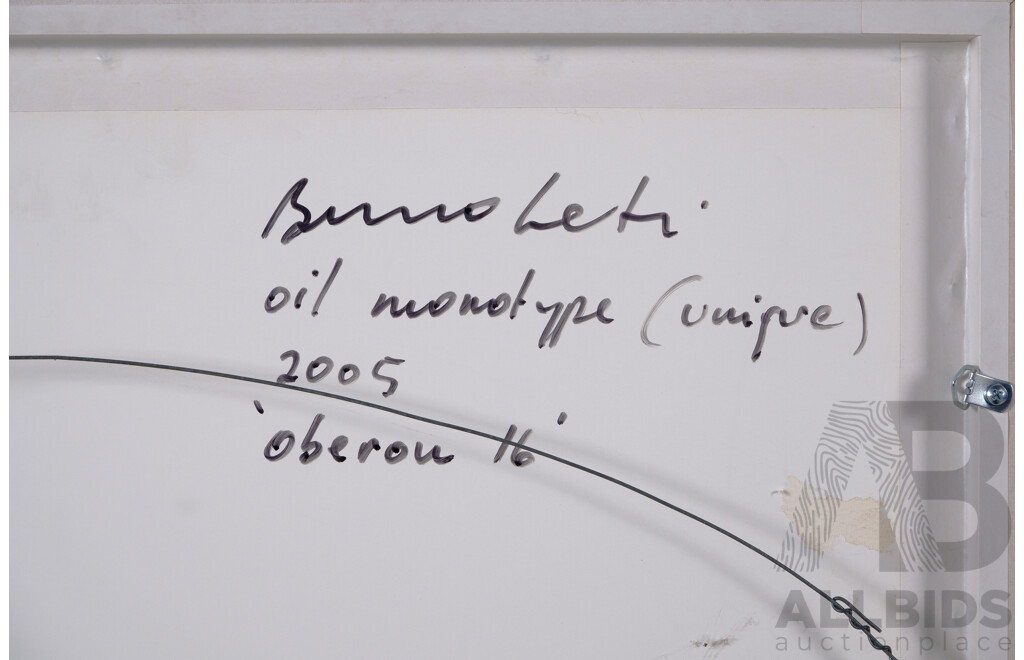 Bruno Leti
oil monotype (unique)
2005
'oberon 16'
AB
ALLBIDS
auctionplace